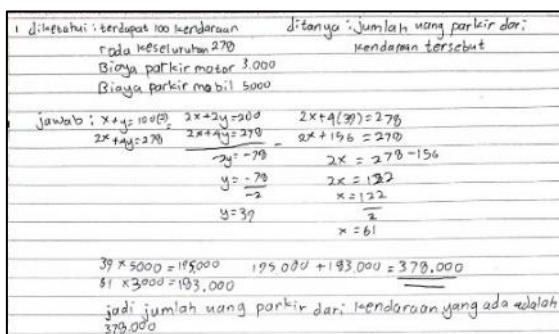 1 diketahui : terdapat 100 kendaraan
roda keseluruhan 278
Biaya parkir motor 3.000
Biaya parkir mobil 5000
ditanya : jumlah uang parkir dari
kendaraan tersebut
jawab : x+y = 100(2) = 2x+2y = 200
2x+4y = 278 2x+4y = 278 -
-2y = -78
y = -78
-2
y = 39
2x+4(39) = 278
2x + 156 = 278
2x = 278 - 156
2x = 122
x = 122
2
x = 61
39 x 5000 = 195,000 195 000 + 183.000 = 378.000
61 x 3000 = 183.000
jadi jumlah uang parkir dari kendaraan yang ada adalah
378.000